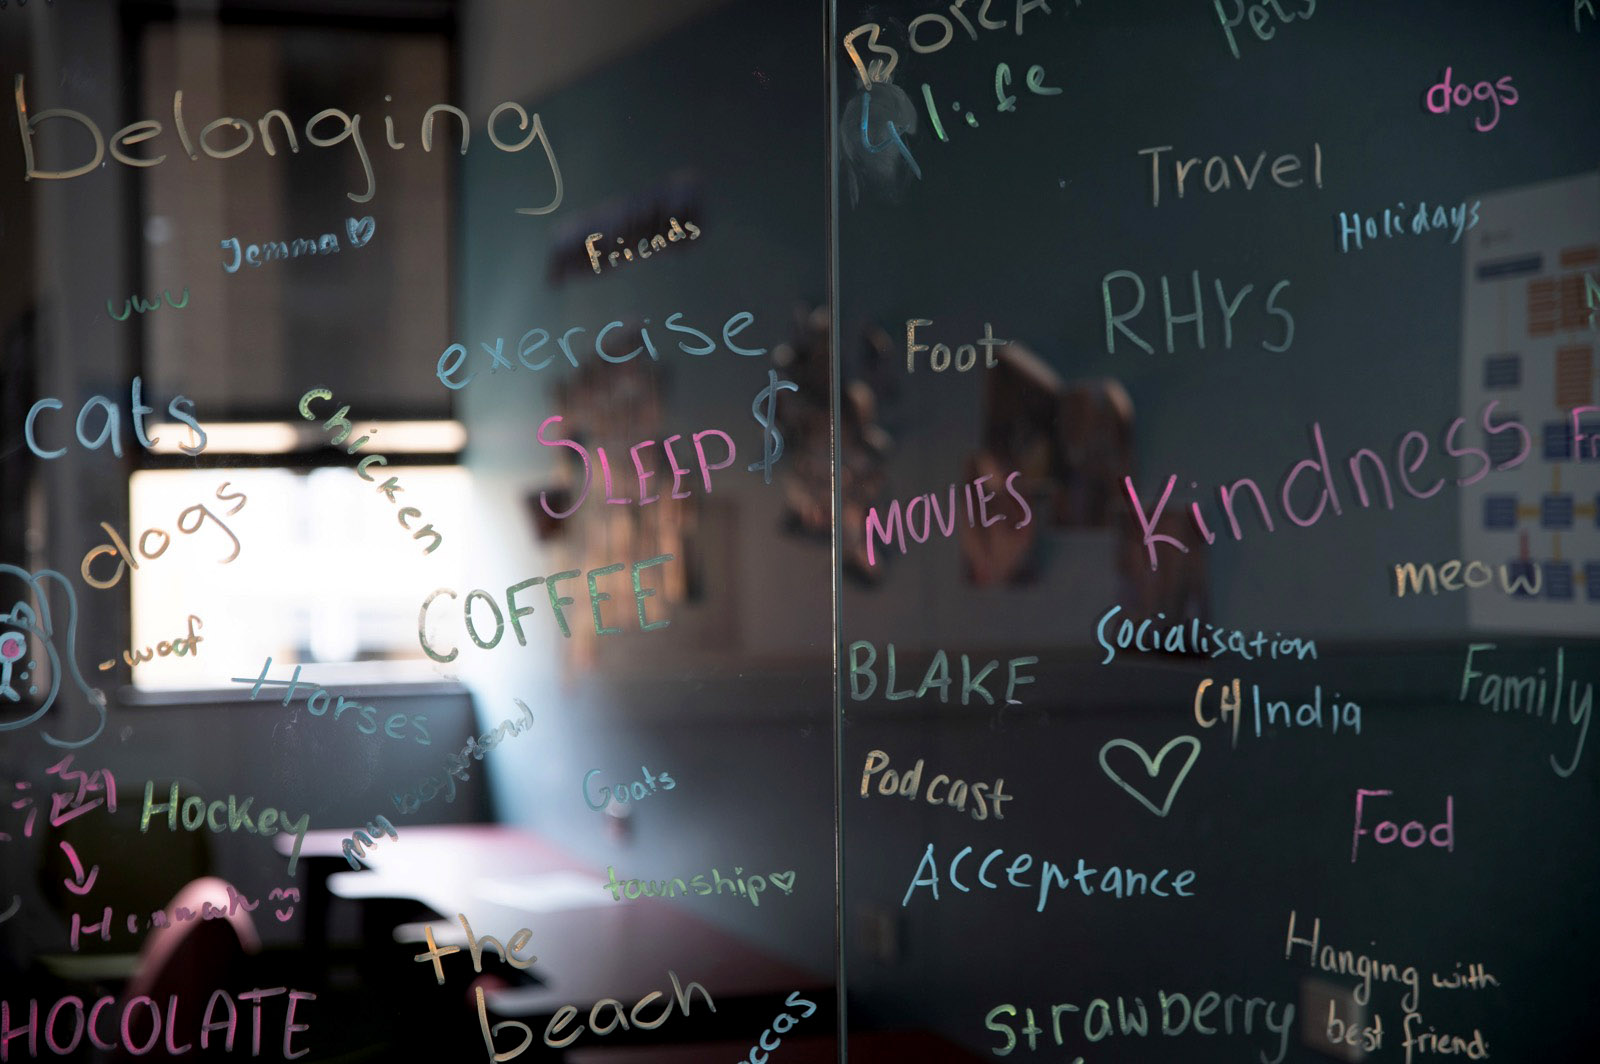 belonging
Jemma
uwu
Friends
exercise
cats
chicken
SLEEP
$
dogs
-woof
COFFEE
Horses
my boyfriend
Goats
Hockey
township
Hannah
the
beach
HOCOLATE
ccas
4 life
Pets
dogs
Travel
Holidays
RHYS
Foot
Kindness
Fr
MOVIES
meow
Socialisation
BLAKE
CH India
Family
Podcast
Food
Acceptance
Hanging with
best friend
Strawberry